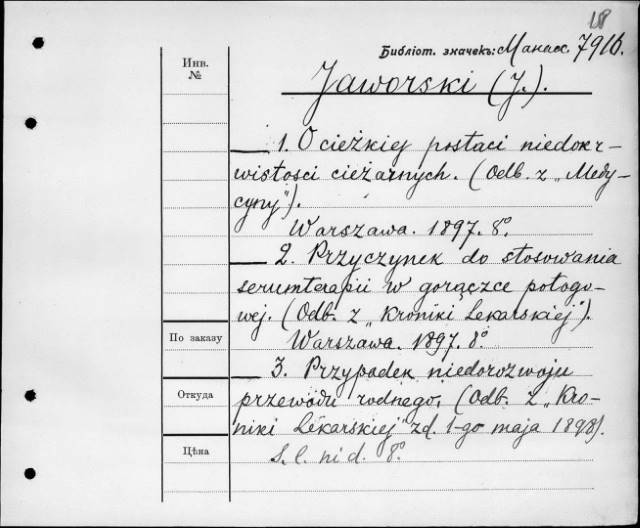 18
Библіот. значекъ: Манасс. 7916.
Инв.
№
Jaworski (J.).
1. O cieżkiej postaci niedokr-
wistosci cieżarnych. (Odb. z „Medy-
cyny").
Warszawa. 1897. 8º
2. Przyczynek do stosowania
serumterapii w gorączce połogo-
wej. (Odb. z „Kroniki Lekarskiej").
По заказу
Warszawa. 1897. 8º
3. Przypadek niedorozwoju
Откуда
przewodu rodnego. (Odb. z „Kro-
niki Lekarskiej" zd. 1-go maja 1898).
Цѣна
S. l. ni d. 8º